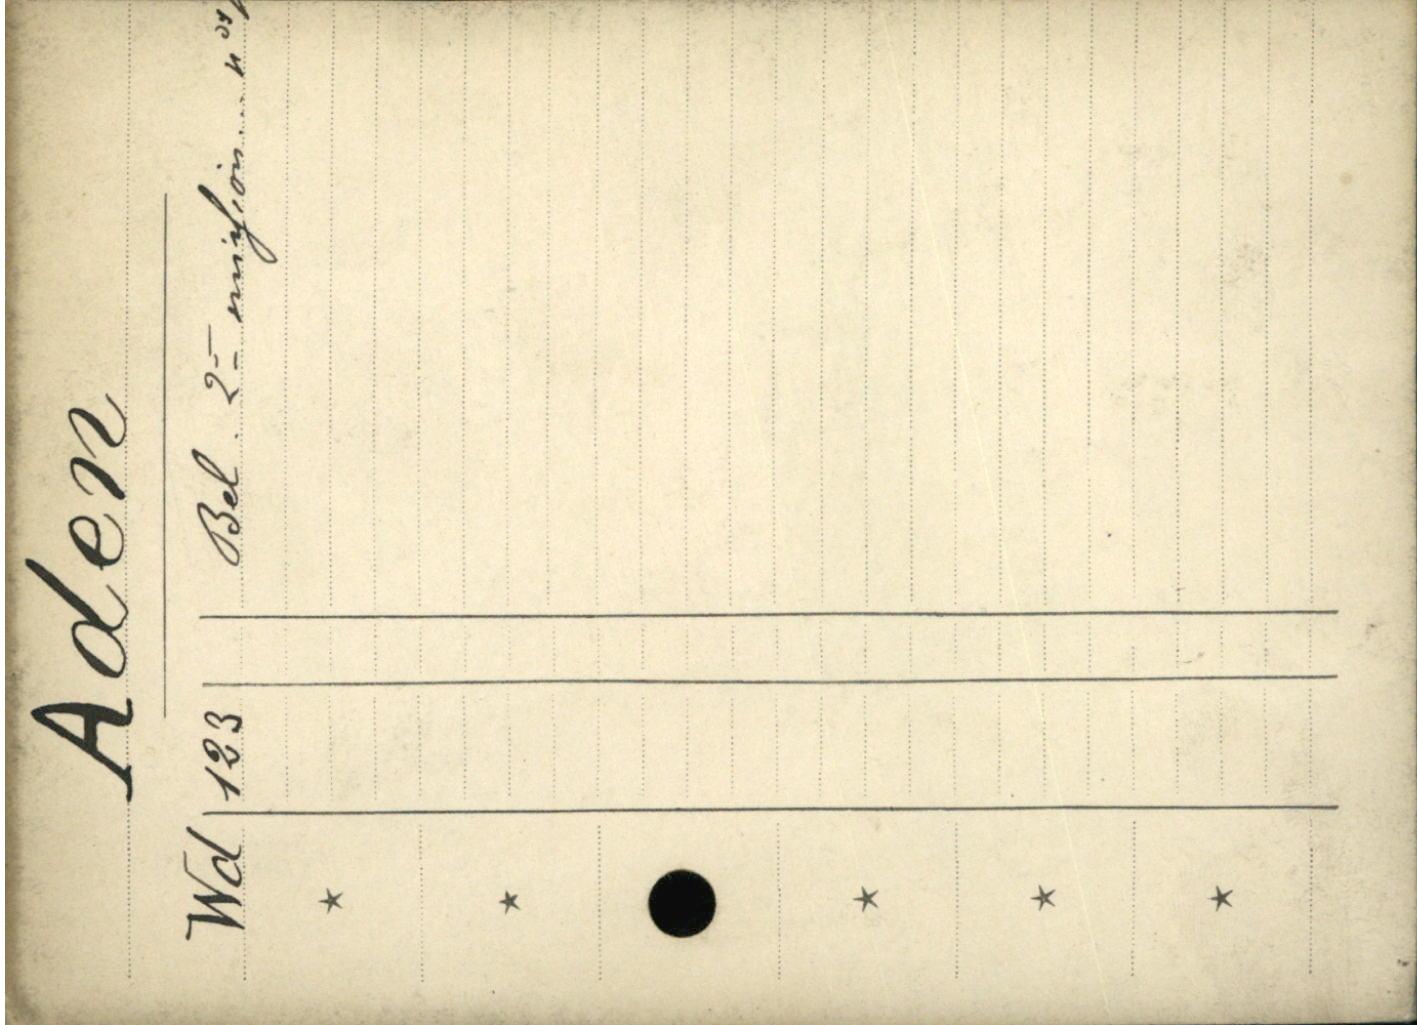 Aden
Wd 123 Bel. 2e mission... nos